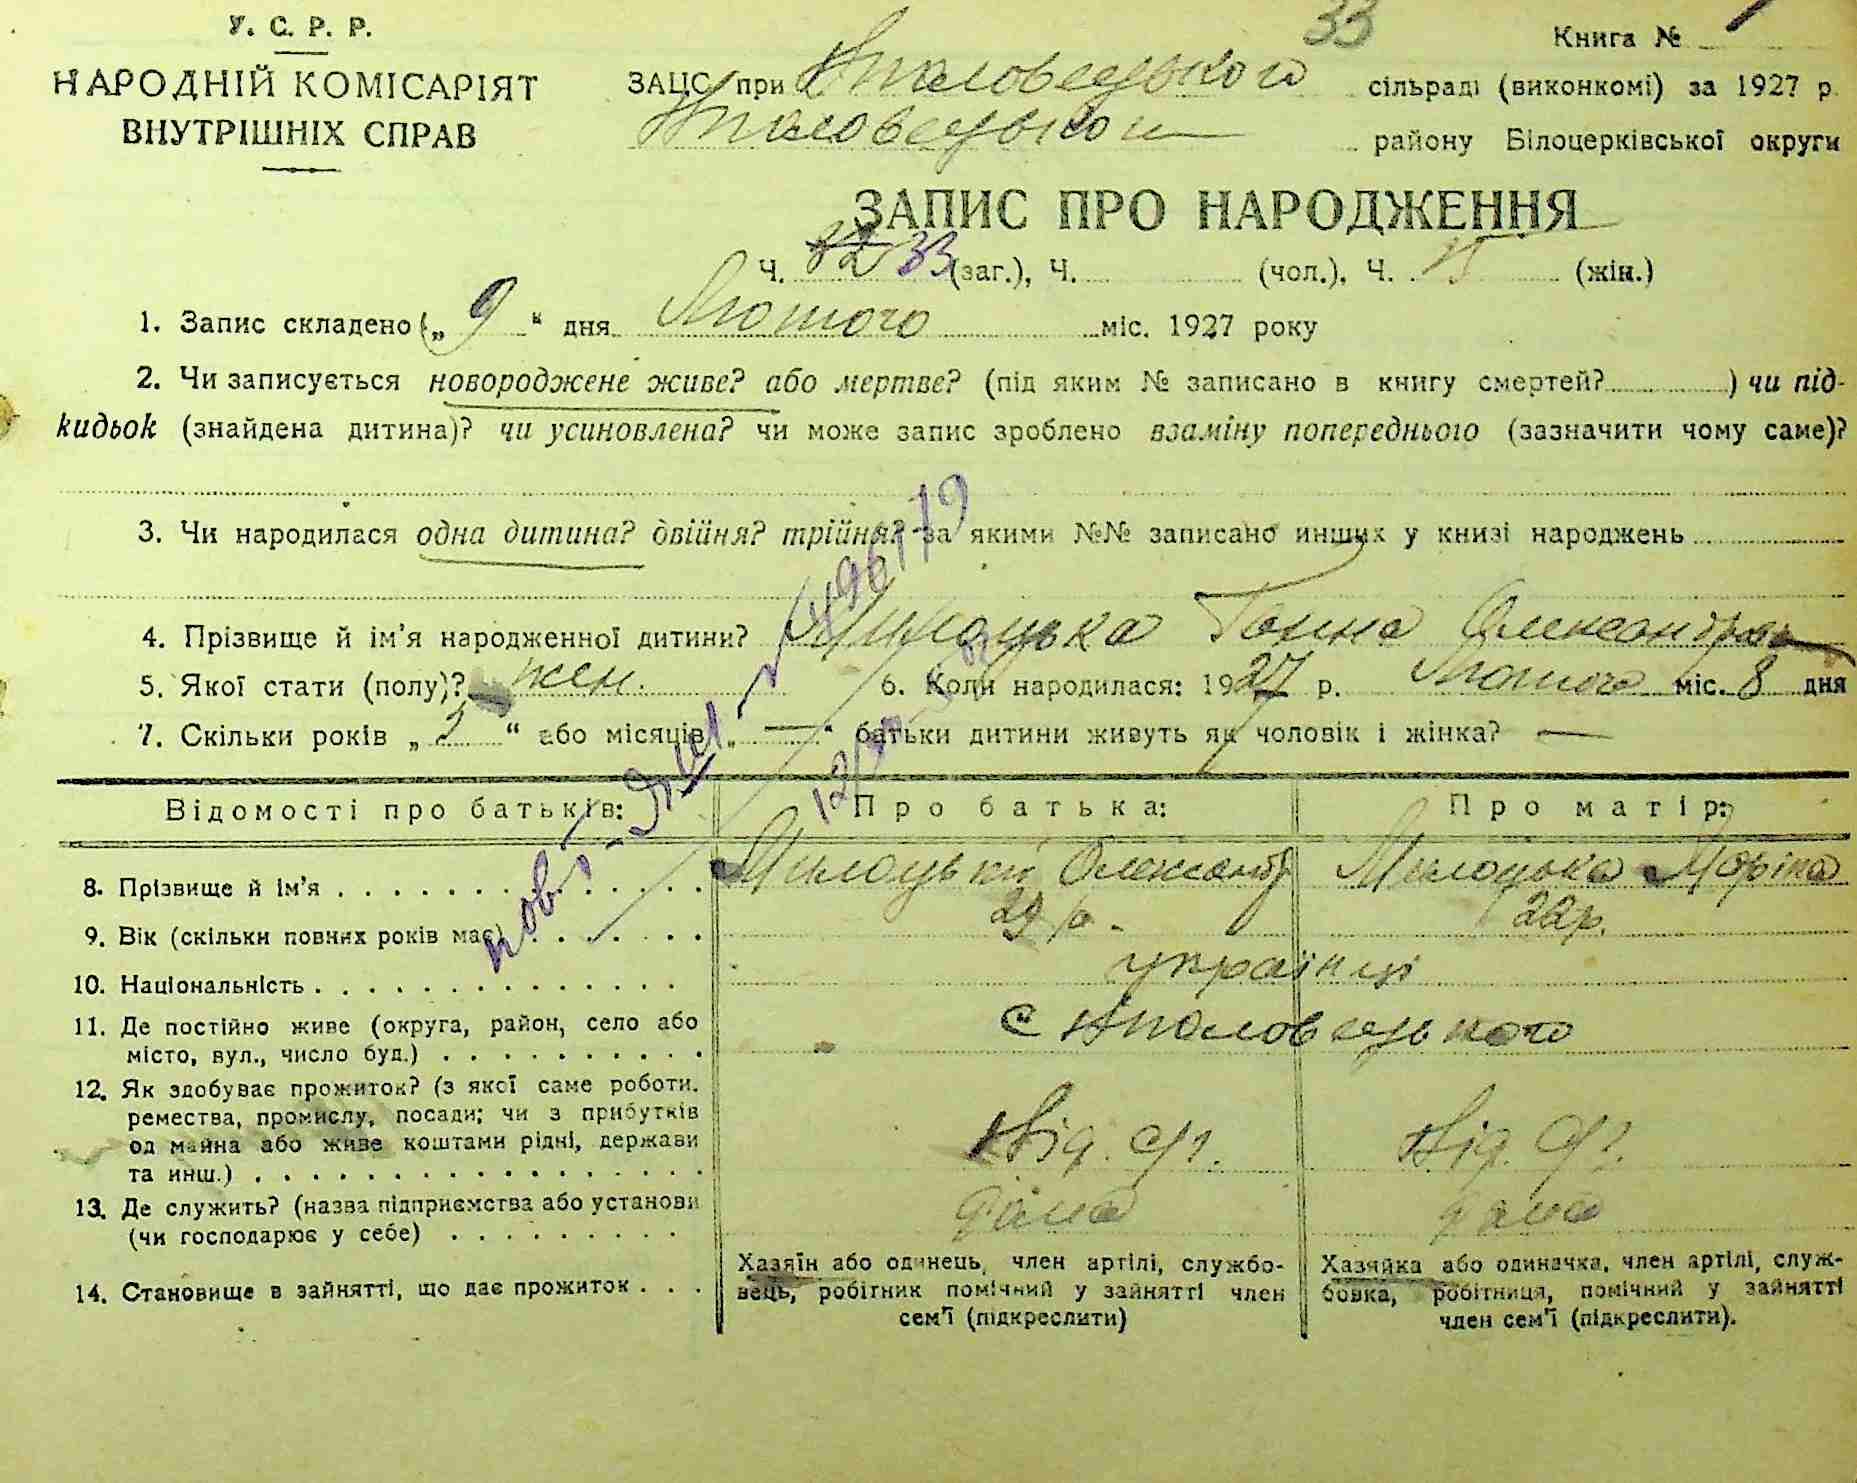 У. С. Р. Р.
НАРОДНІЙ КОМІСАРІЯТ
ВНУТРІШНІХ СПРАВ
33
Книга №
ЗАЦС при сільраді (виконкомі) за 1927 р.
району Білоцерківської округи
ЗАПИС ПРО НАРОДЖЕННЯ
Ч. 32 33 (заг.), Ч. (чол.), Ч. 15 (жін.)
1. Запис складено („ 9 “ дня Лютого міс. 1927 року
2. Чи записується новороджене живе? або мертве? (під яким № записано в книгу смертей? ) чи під-
кидьок (знайдена дитина)? чи усиновлена? чи може запис зроблено взаміну попереднього (зазначити чому саме)?
3. Чи народилася одна дитина? двійня? трійня? за якими №№ записано инших у книзі народжень
4. Прізвище й ім’я народженної дитини? Милоцька Ганна Олександровна
5. Якої стати (полу)? жен. 6. Коли народилася: 1927 р. Лютого міс. 8 дня
7. Скільки років „ 2 “ або місяців „ — “ батьки дитини живуть як чоловік і жінка? —
Відомості про батьків: Про батька: Про матір:
8. Прізвище й ім’я Милоцький Олександр Милоцька Марія
9. Вік (скільки повних років має) 29 р. 22 р.
10. Національність українці
11. Де постійно живе (округа, район, село або
місто, вул., число буд.) с
12. Як здобуває прожиток? (з якої саме роботи.
ремества, промислу, посади; чи з прибутків
од майна або живе коштами рідні, держави
та инш.)
13. Де служить? (назва підприємства або установи
(чи господарює у себе)
14. Становище в зайнятті, що дає прожиток
Хазяїн або одинець, член артілі, службо-
вець, робітник помічний у зайнятті член
сем’ї (підкреслити)
Хазяйка або одиначка, член артілі, служ-
бовка, робітниця, помічний у зайнятті
член сем’ї (підкреслити).